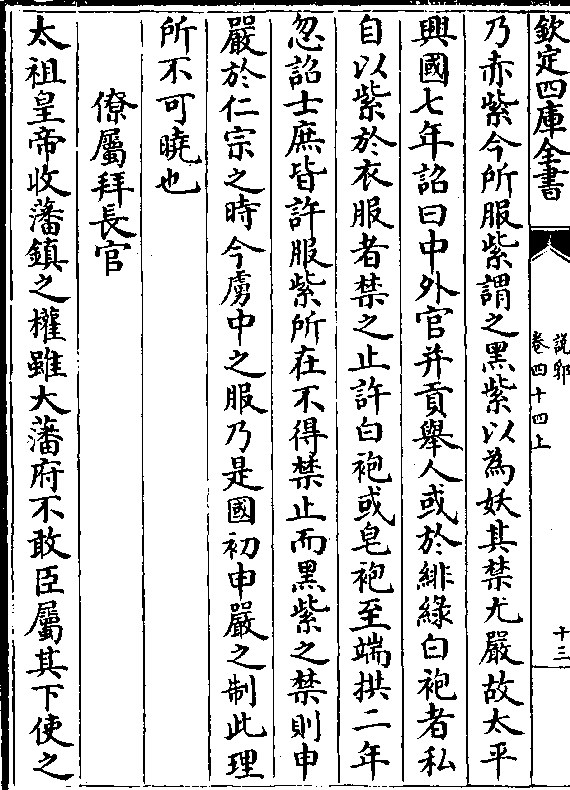 欽定四庫全書
說郛
卷四十四上
十三
乃赤紫今所服紫謂之黑紫以為妖其禁尤嚴故太平
興國七年詔曰中外官并貢舉人或於緋綠白袍者私
自以紫於衣服者禁之止許白袍或皂袍至端拱二年
忽詔士庶皆許服紫所在不得禁止而黑紫之禁則申
嚴於仁宗之時今虜中之服乃是國初申嚴之制此理
所不可曉也
僚屬拜長官
太祖皇帝收藩鎮之權雖大藩府不敢臣屬其下使之